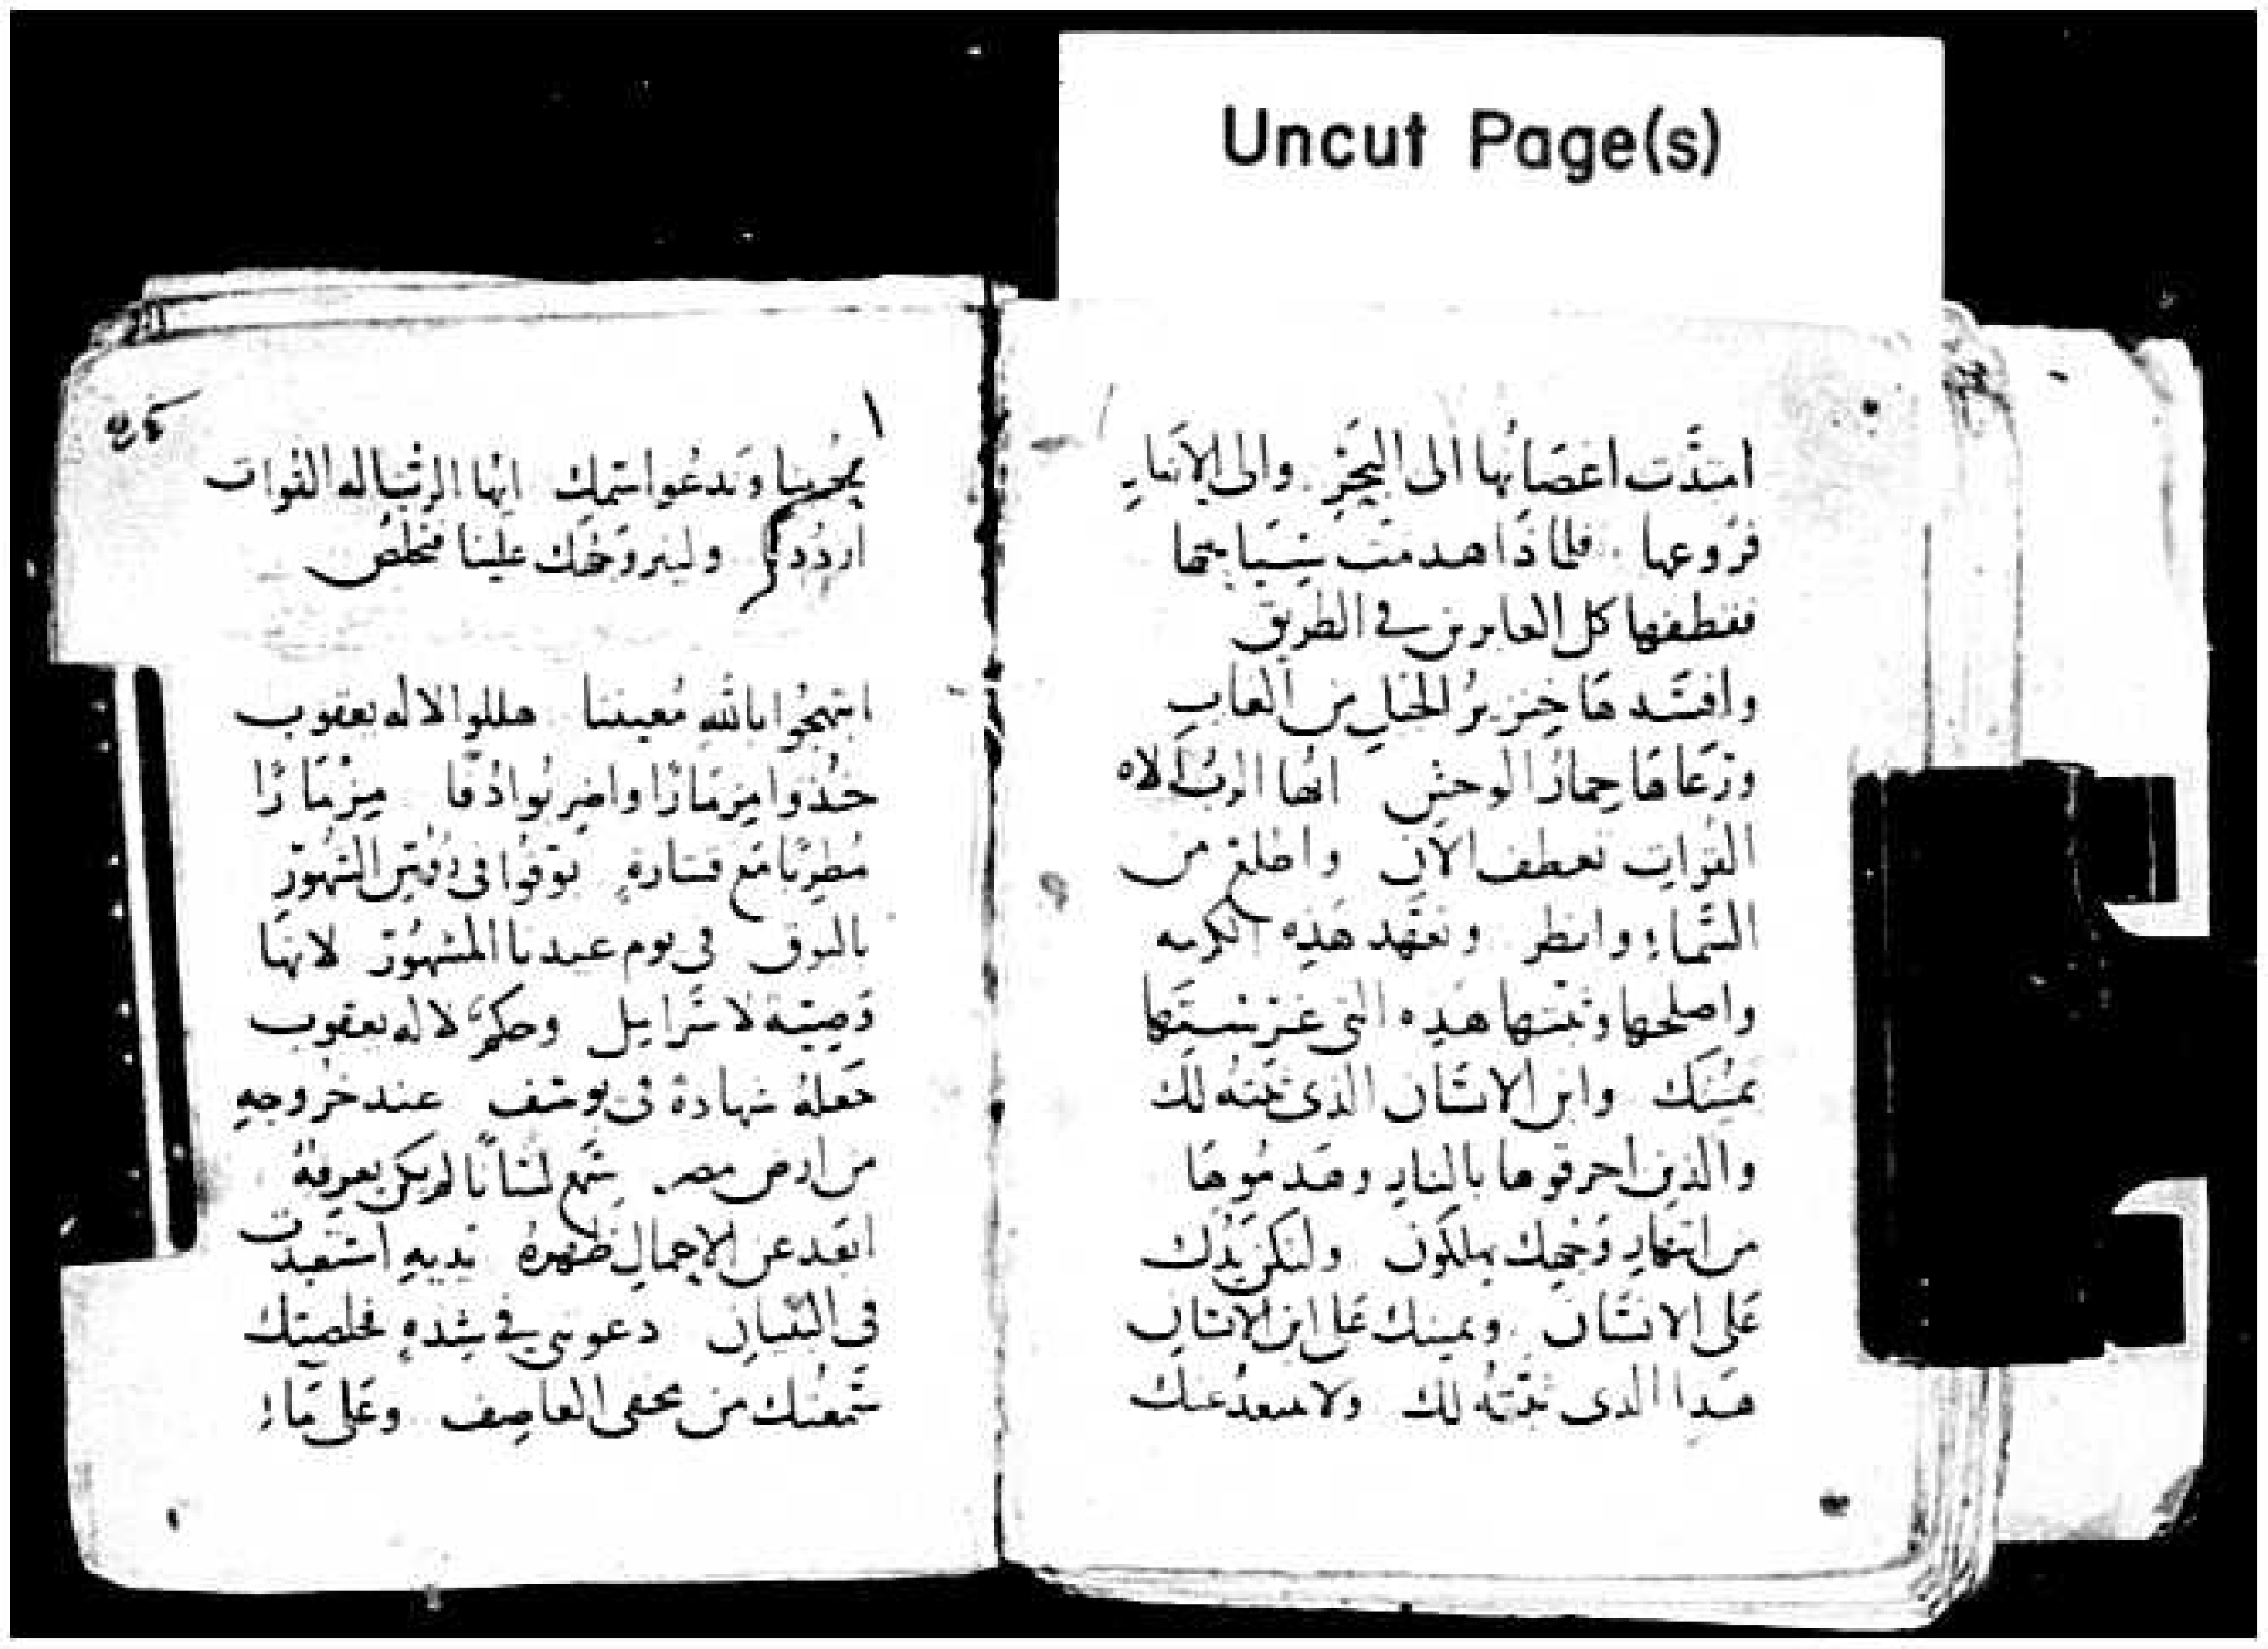 Uncut Page(s)
امتدت اغصانها الى البحر والى الانهار
فروعها فلماذا هدمت سياجها
فقطفها كل العابرين في الطريق
وافسدها خنزير الخيل من الغاب
ورعاها حمار الوحش ايها الرب الاه
القوات تعطف الان واطلع من
السماء وانظر وتعهد هذه الكرمه
واصلحها وثبتها هذه التي غرستها
يمينك وابن الانسان الذي ثبته لك
والذين احرقوها بالنار وهدموها
من انتهار وجهك يهلكون ولتكن يدك
على الانسان ويمينك على ابن الانسان
هدا الدى ثبته لك ولا نبعد عنك
يحيينا وندعوا اسمك ايها الرب اله القوات
ارددنا ولينر وجهك علينا فنخلص
ابتهجوا بالله معيننا هللوا لاله يعقوب
خذوا مزمارا واضربوا دفا مزمارا
مطربا مع قيثارة بوقوا في رؤس الشهور
بالبوق في يوم عيدنا المشهور لانها
وصية لاسرايل وحكم لاله يعقوب
جعله شهادة في يوسف عند خروجه
من ارض مصر سمع لسانا لم يكن يعرفه
ابعد عن الاحمال ظهره يديه استعبدت
في دعوتني في شدة فخلصتك
سمعتك من مخفى العاصف وعلى ماء